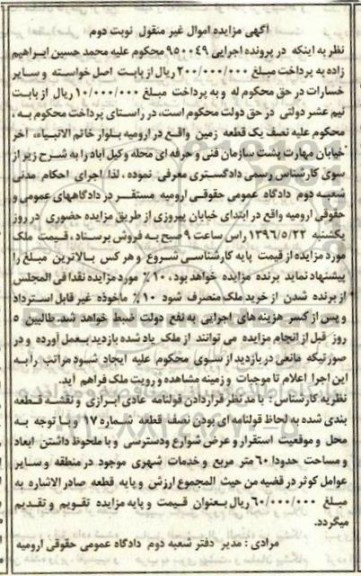 آگهی مزایده اموال غیر منقول نوبت دوم
نظر به اینکه در پرونده اجرایی ۹۵۰۰۴۹ محکوم علیه محمد حسین ابراهیم
زاده به پرداخت مبلغ ۲۰۰/۰۰۰/۰۰۰ ریال از بابت اصل خواسته و سایر
خسارات در حق محکوم له و به پرداخت مبلغ ۱۰/۰۰۰/۰۰۰ ریال از بابت
نیم عشر دولتی در حق دولت محکوم است، در راستای پرداخت محکوم به ،
محکوم علیه نصف یک قطعه زمین واقع در ارومیه بلوار خاتم الانبیاء، آخر
خیابان مهارت پشت سازمان فنی و حرفه ای محله وکیل آباد را به شرح زیر از
سوی کارشناس رسمی دادگستری معرفی نموده ، لذا اجرای احکام مدنی
شعبه دوم دادگاه عمومی حقوقی ارومیه مستقر در دادگاههای عمومی و
حقوقی ارومیه واقع در ابتدای خیابان پیروزی از طریق مزایده حضوری در روز
یکشنبه ۱۳۹۶/۵/۲۲ راس ساعت ۹ صبح به فروش برساند ، قیمت ملک
مورد مزایده از قیمت پایه کارشناسی شروع و هر کس بالاترین مبلغ را
پیشنهاد نماید برنده مزایده خواهد بود ، ۱۰٪ مورد مزایده نقدا فی المجلس
از برنده شدن از خرید ملک منصرف شود ۱۰٪ ماخوذه غیر قابل استرداد
و پس از کسر هزینه های اجرایی به نفع دولت ضبط خواهد شد. طالبین ۵
روز قبل از انجام مزایده می توانند از ملک یاد شده بازدید بعمل آورده و در
صورتیکه مانعی در بازدید از سوی محکوم علیه ایجاد شود مراتب را به
این اجرا اعلام تا موجبات و زمینه مشاهده و رویت ملک فراهم آید.
نظریه کارشناس : با مد نظر قراردادن قولنامه عادی ابرازی و نقشه قطعه
بندی شده به لحاظ قولنامه ای بودن نصف قطعه شماره ۲۱۷ و با توجه به
محل و موقعیت استقرار و عرض شوارع و دسترسی و با ملحوظ داشتن ابعاد
و مساحت حدودا ۶۰ متر مربع و خدمات شهری موجود در منطقه و سایر
عوامل کوثر در قضیه من حیث المجموع ارزش و پایه قطعه صادر الاشاره به
مبلغ ۶۰/۰۰۰/۰۰۰ ریال بعنوان قیمت و پایه مزایده تقویم و تقدیم
میگردد.
مرادی : مدیر دفتر شعبه دوم دادگاه عمومی حقوقی ارومیه